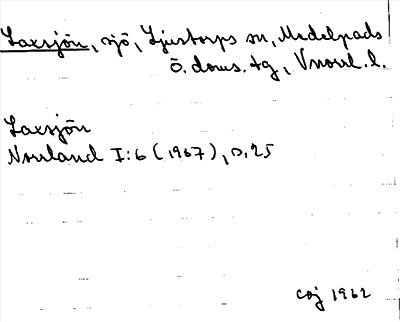 Laxsjön, sjö, Ljustorps sn, Medelpads
ö. doms. tg, Vnorrl. l.
Laxsjön
Norrland I:6 (1967), s. 25
coj 1962